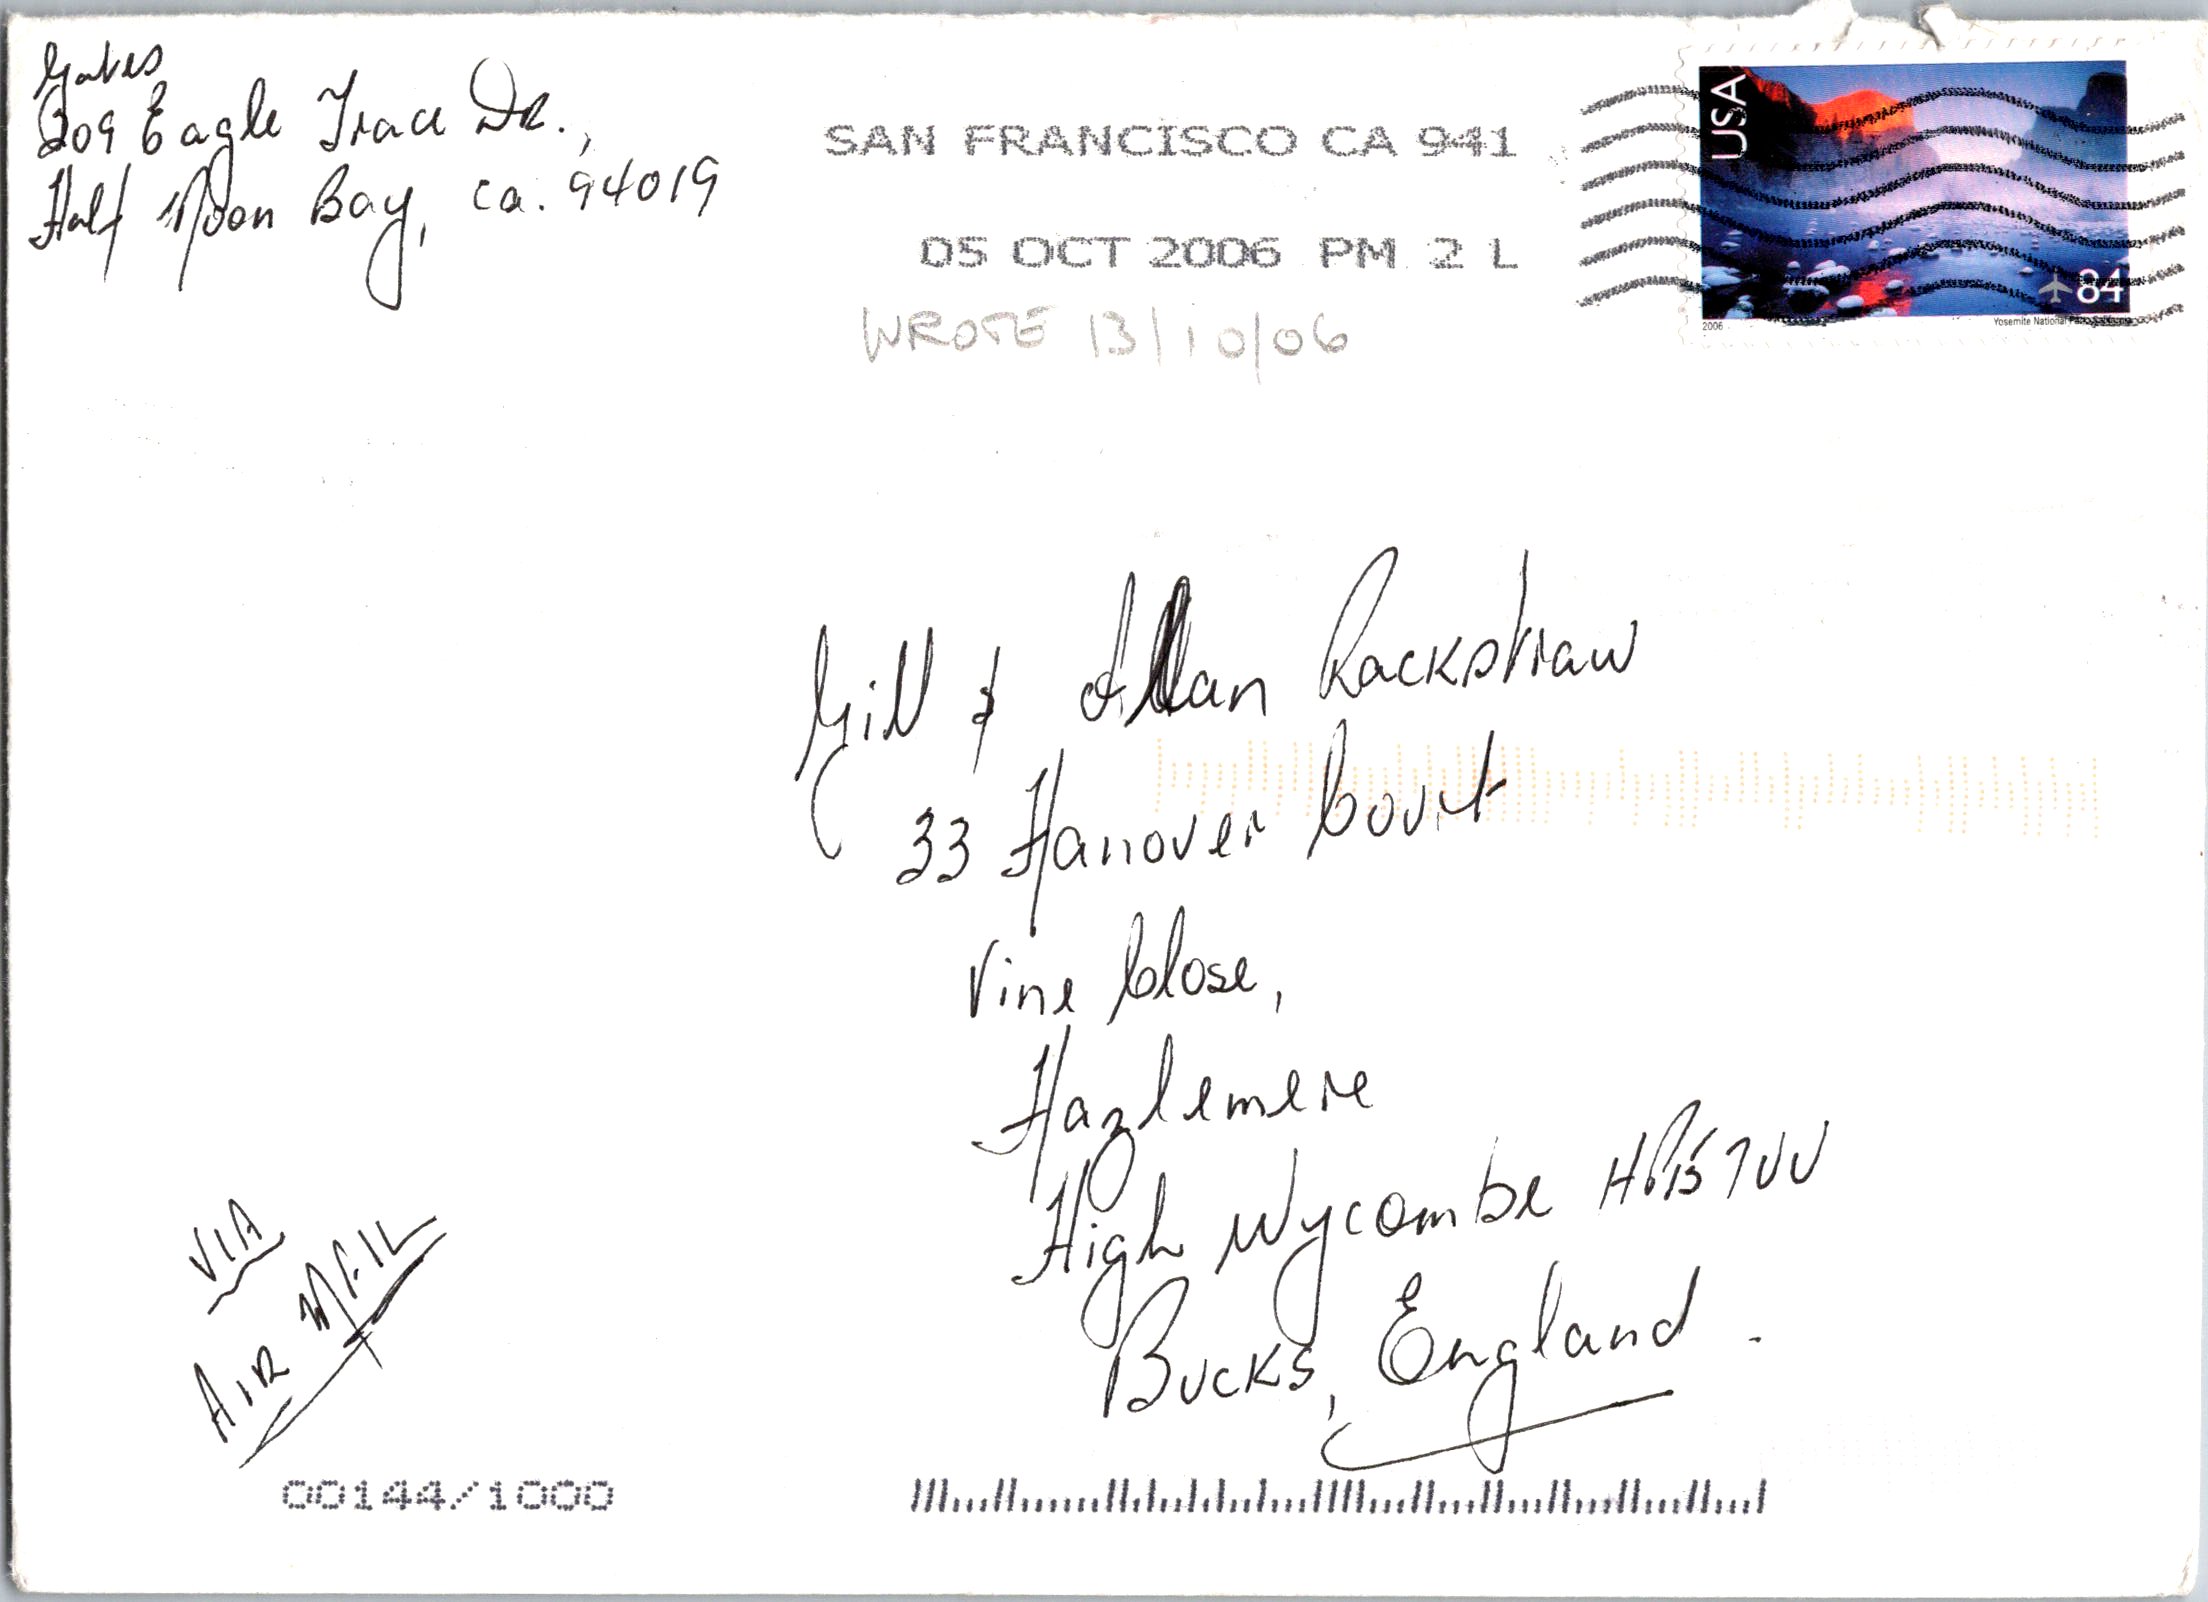 Gates
209 Eagle Trace Dr.,
Half Moon Bay, Ca. 94019
SAN FRANCISCO CA 941
05 OCT 2006 PM 2 L
WROTE 13/10/06
USA
84
2006
Yosemite National
Gill & Allan Rackstraw
33 Hanover Court
Vine Close,
Hazlemere
High Wycombe HP15 7UU
Bucks, England.
VIA
AIR MAIL
00144/1000